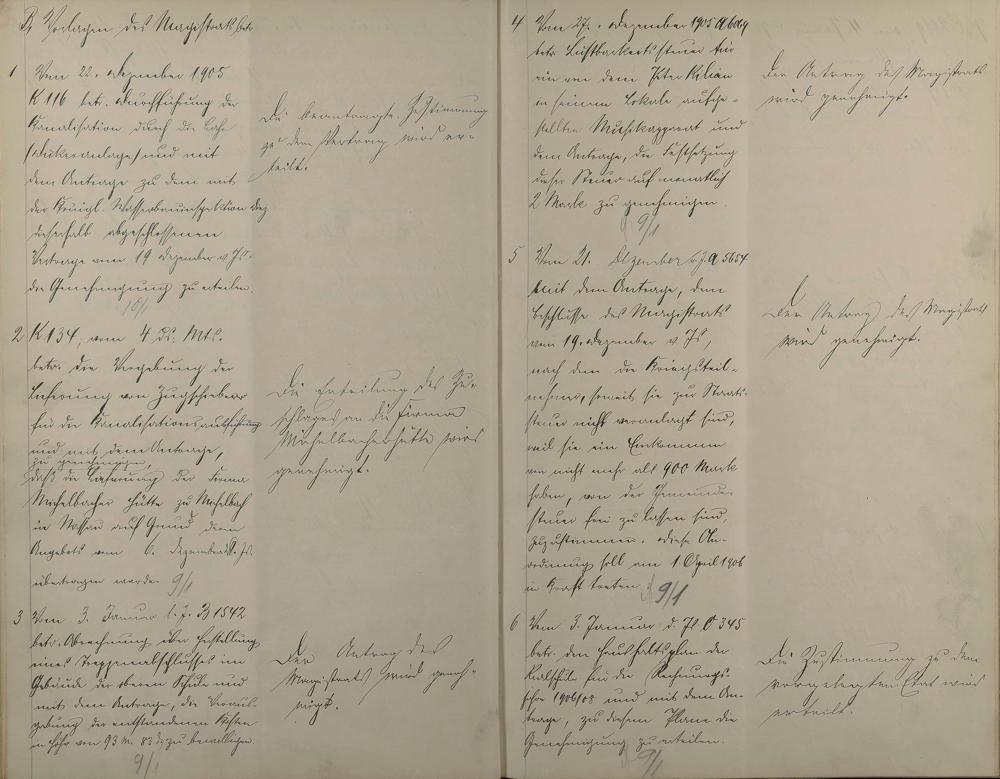 B, Vorlagen des Magistrats betr.
1 Vom 22. Dezember 1905
K 116 betr. Durchführung der
Kanalisation durch die Lahn
(Dükeranlage) und mit
dem Antrage zu dem mit
der Königl. Wasserbauinspektion Diez
dieserhalb abgeschlossenen
Vertrage vom 19 Dezember v. Js.
die Genehmigung zu erteilen.
10/1
Die beantragte Zustimmung
zu dem Vertrag wird er-
teilt.
2 K 134, vom 4 ds. Mts.
betr. die Vergebung der
Lieferung von Zugschiebern
für die Kanalisationsausführung
und mit dem Antrage,
zu genehmigen,
daß die Lieferung der Firma
Michelbacher Hütte zu Michelbach
in Nassau auf Grund deren
Angebots vom 6. Dezember v. Js.
übertragen werde. 9/1
Die Erteilung des Zu-
schlages an die Firma
Michelbacherhütte wird
genehmigt.
3 Vom 3. Januar l. J. B 1542
betr. Abrechnung über Herstellung
eines Treppenabschlusses im
Gebäude der oberen Schule und
mit dem Antrage, die Veraus-
gabung der entstandenen Kosten
in Höhe von 93 M. 83 d. zu bewilligen.
9/1
Der Antrag des
Magistrats wird geneh-
migt.
4 Vom 27. Dezember 1905 A 6069
betr. Lustbarkeitssteuer für
ein von dem Peter Kilian
in seinem Lokale aufge-
stellten Musikapparat und
dem Antrage, die Festsetzung
dieser Steuer auf monatlich
2 Mark zu genehmigen.
9/1
Der Antrag des Magistrats
wird genehmigt.
5 Vom 21. Dezember v. J. A 5654
mit dem Antrage, dem
Beschlusse des Magistrats
vom 19. Dezember v Js,
nach dem die Kriegsteil-
nehmer, soweit sie zur Staats-
steuer nicht veranlagt sind,
weil sie ein Einkommen
von nicht mehr als 900 Mark
haben, von der Gemeinde-
steuer frei zu lassen sind,
zuzustimmen. Diese An-
ordnung soll am 1 April 1906
in Kraft treten 9/1
Der Antrag des Magistrats
wird genehmigt.
6 Vom 3. Januar d. Js. C 345
betr. den Haushaltsplan der
Realschule für die Rechnungs-
jahre 1906/08 und mit dem An-
trage, zu diesem Plane die
Genehmigung zu erteilen.
9/1
Die Zustimmung zu dem
vorgelegten Etat wird
erteilt.